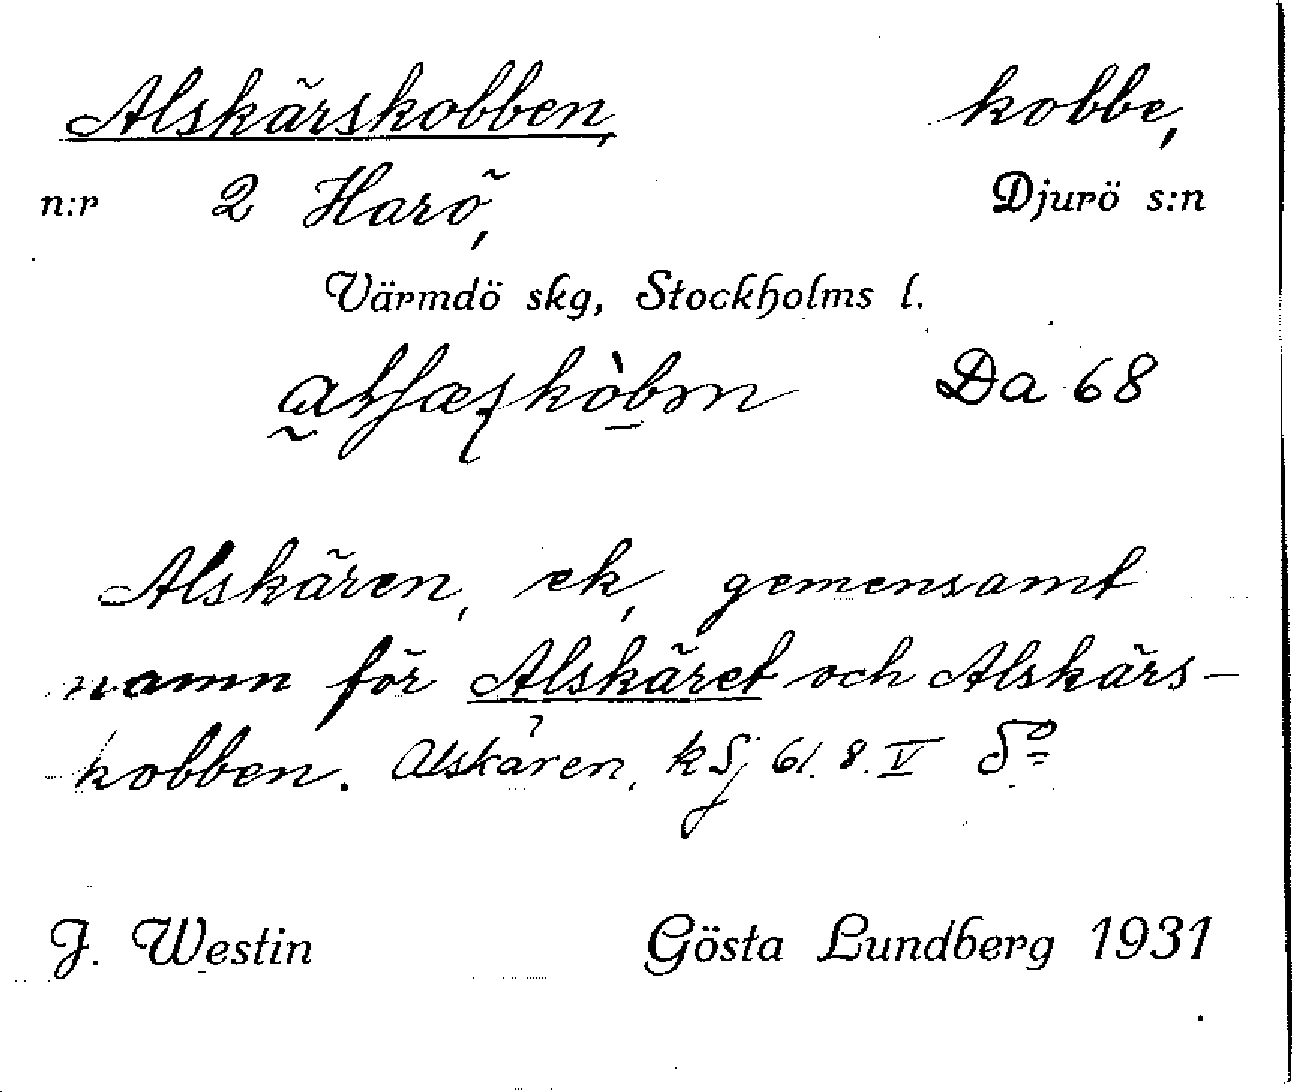 Alskärskobben, kobbe,
n:r 2 Harö, Djurö s:n
Värmdö skg, Stockholms l.
Da 68
Alskären, ek, gemensamt
namn för Alskäret och Alskärs-
kobben. Alskären, kSj 61. 8. V
J. Westin Gösta Lundberg 1931